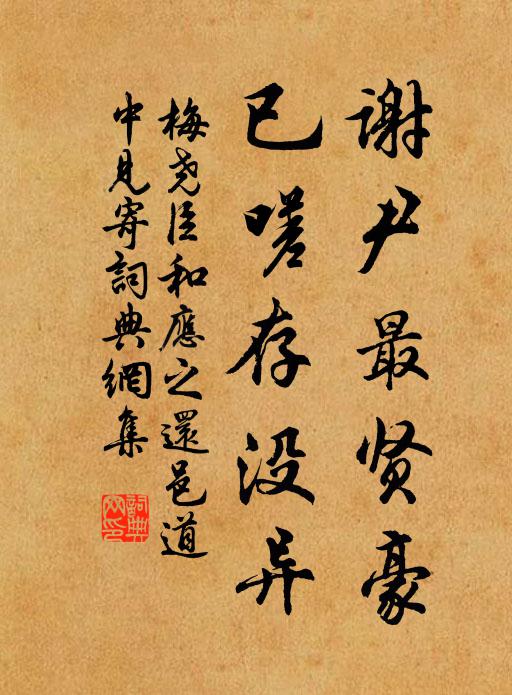 谢尹最贤豪
已嗟存没异
梅尧臣和應之還邑道
中見寄詞典網集
詞典
网印